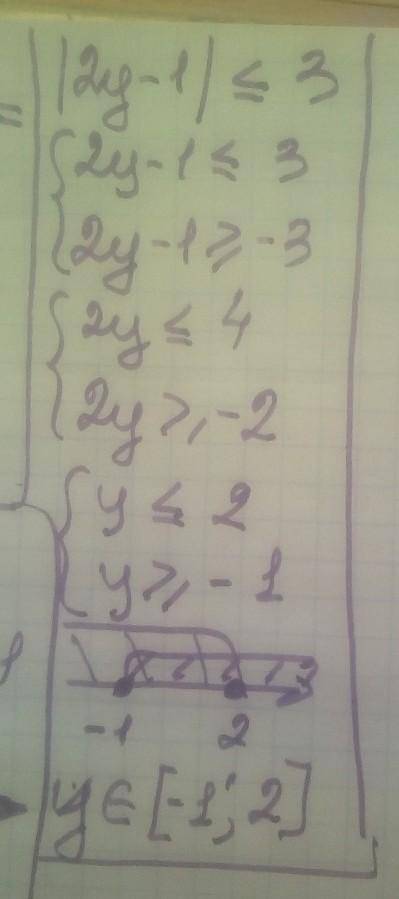 |2y-1| ≤ 3
{2y-1 ≤ 3
2y-1 ≥ -3
{2y ≤ 4
2y ≥ -2
{y ≤ 2
y ≥ -1
-1 2
y ∈ [-1; 2]